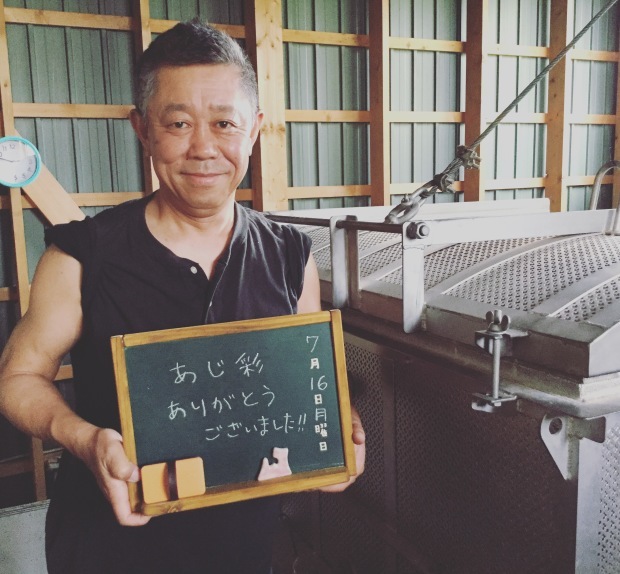 あじ彩
ありがとう
ございました!!
7月16日月曜日